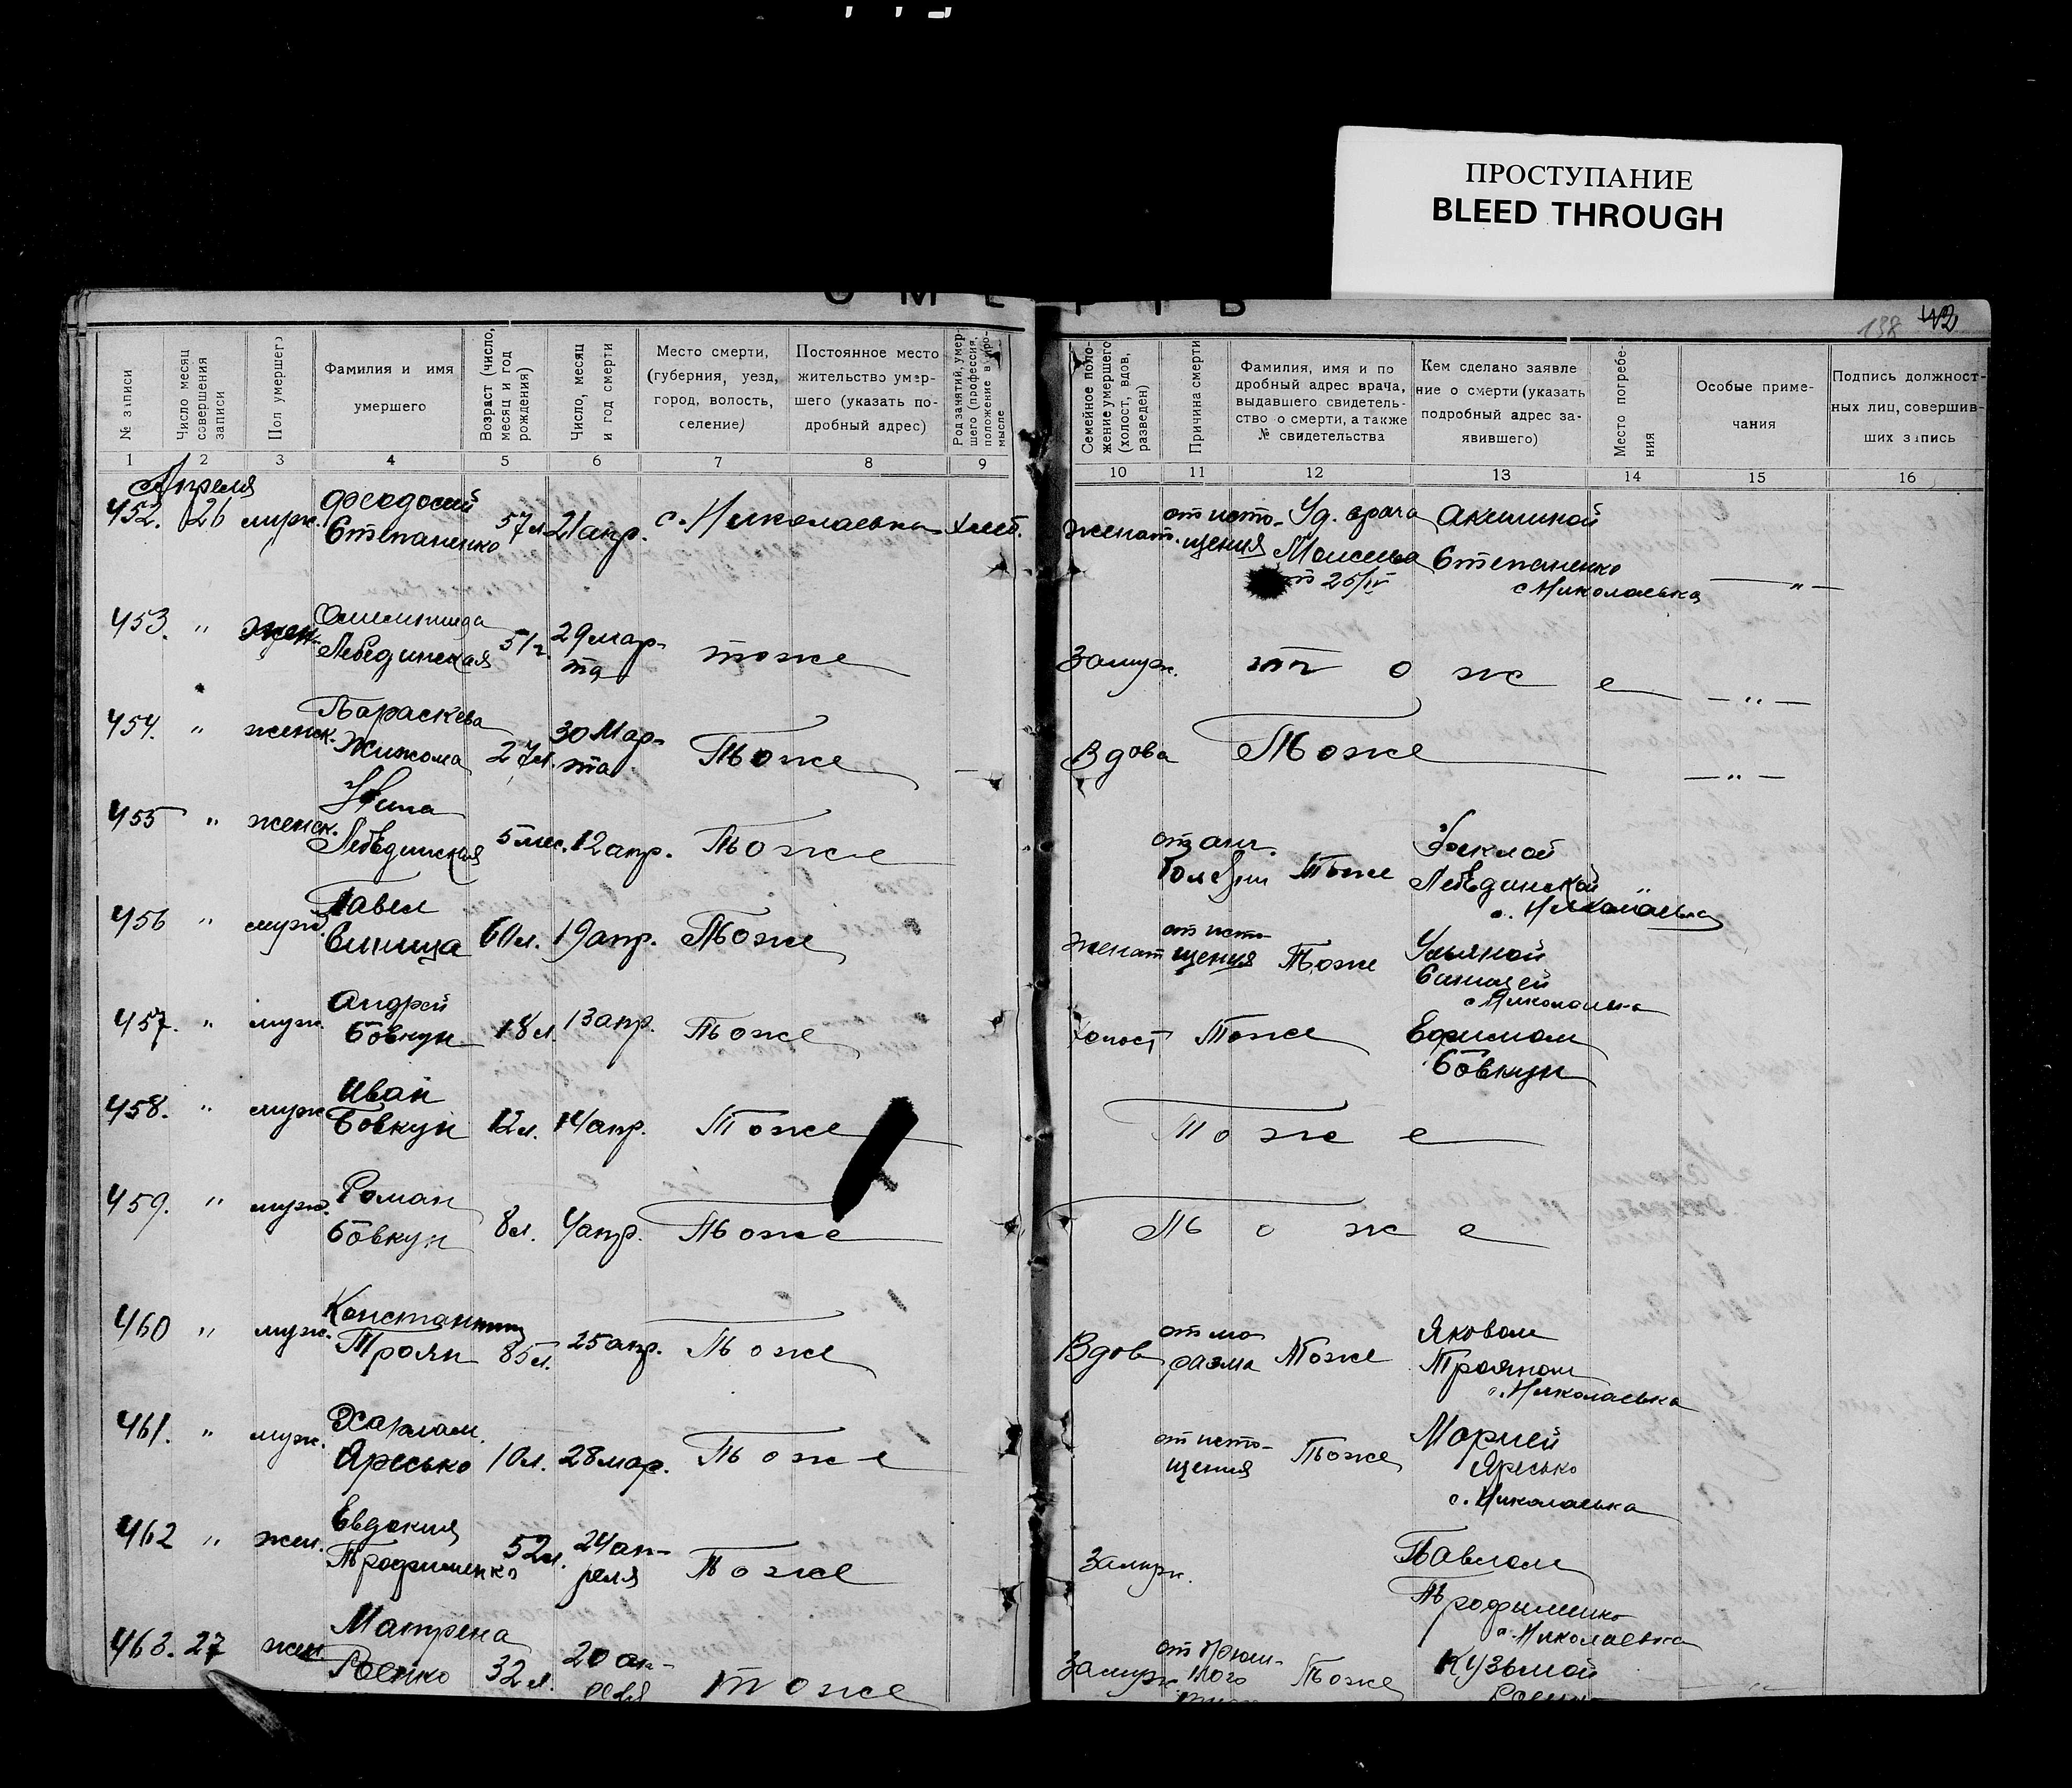 ПРОСТУПАНИЕ
BLEED THROUGH
198 42
№ записи
Число месяц совершения записи
Пол умершего
Фамилия и имя
умершего
Возраст (число, месяц и год рождения)
Число, месяц и год смерти
Место смерти,
(губерния, уезд,
город, волость,
селение)
Постоянное место
жительство умер-
шего (указать по-
дробный адрес)
Род занятий, умер-
шего (профессия,
положение в про-
мысле
Семейное поло-
жение умершего
(холост, вдов,
разведен)
Причина смерти
Фамилия, имя и по
дробный адрес врача,
выдавшего свидетель-
ство о смерти, а также
№ свидетельства
Кем сделано заявле
ние о смерти (указать
подробный адрес за-
явившего)
Место погребе-
ния
Особые приме-
чания
Подпись должност-
ных лиц, совершив-
ших запись
1 2 3 4 5 6 7 8 9 10 11 12 13 14 15 16
Апреля
452. 26 муж. Феодосий
Степаненко 57 л. 21 апр. с. Николаевка хлеб.
женат. от исто-
щения Уд. врача
Моисеева
25/IV Акилиной
Степаненко
с Николаевка — " —
453. " жен.
Лебединская 51 г. 29 мар-
та тоже
Замуж. т о ж е — " —
454. " женск. Параскева
Жижома 27 л. 30 Мар-
та Тоже
Вдова Тоже — " —
455 " женск. Нина
Лебединская 5 мес. 12 апр. Тоже
от анг.
Тоже Феклой
Лебединской
с. Николаевка
456 " муж. Павел
Синица 60 л. 19 апр. Тоже
женат от исто
щения Тоже Ульяной
Синицей
с Николаевка
457. " муж. Андрей
Бовкун 18 л. 13 апр. Тоже
холост Тоже Ефимом
Бовкун
458. " муж. Иван
Бовкун 12 л. 14 апр. Тоже
Т о ж е
459. " муж. Роман
Бовкун 8 л. 4 апр. Тоже
Т о ж е
460 " муж. Константин
Троян 85 л. 25 апр. Тоже
Вдов от ма
разма Тоже Яковом
Трояном
с. Николаевка
461. " муж. Харлам.
Яресько 10 л. 28 мар. Тоже
от исто-
щения Тоже Марией
Яресько
с. Николаевка
462 " жен. Евдокия
Трофименко 52 л. 24 ап-
реля Тоже
Замуж. Павлом
Трофименко
с. Николаевка
463. 27 жен. Матрена
Роенко 32 л. 20 ап-
реля тоже
Замуж от брюш-
ного Тоже Кузьмой